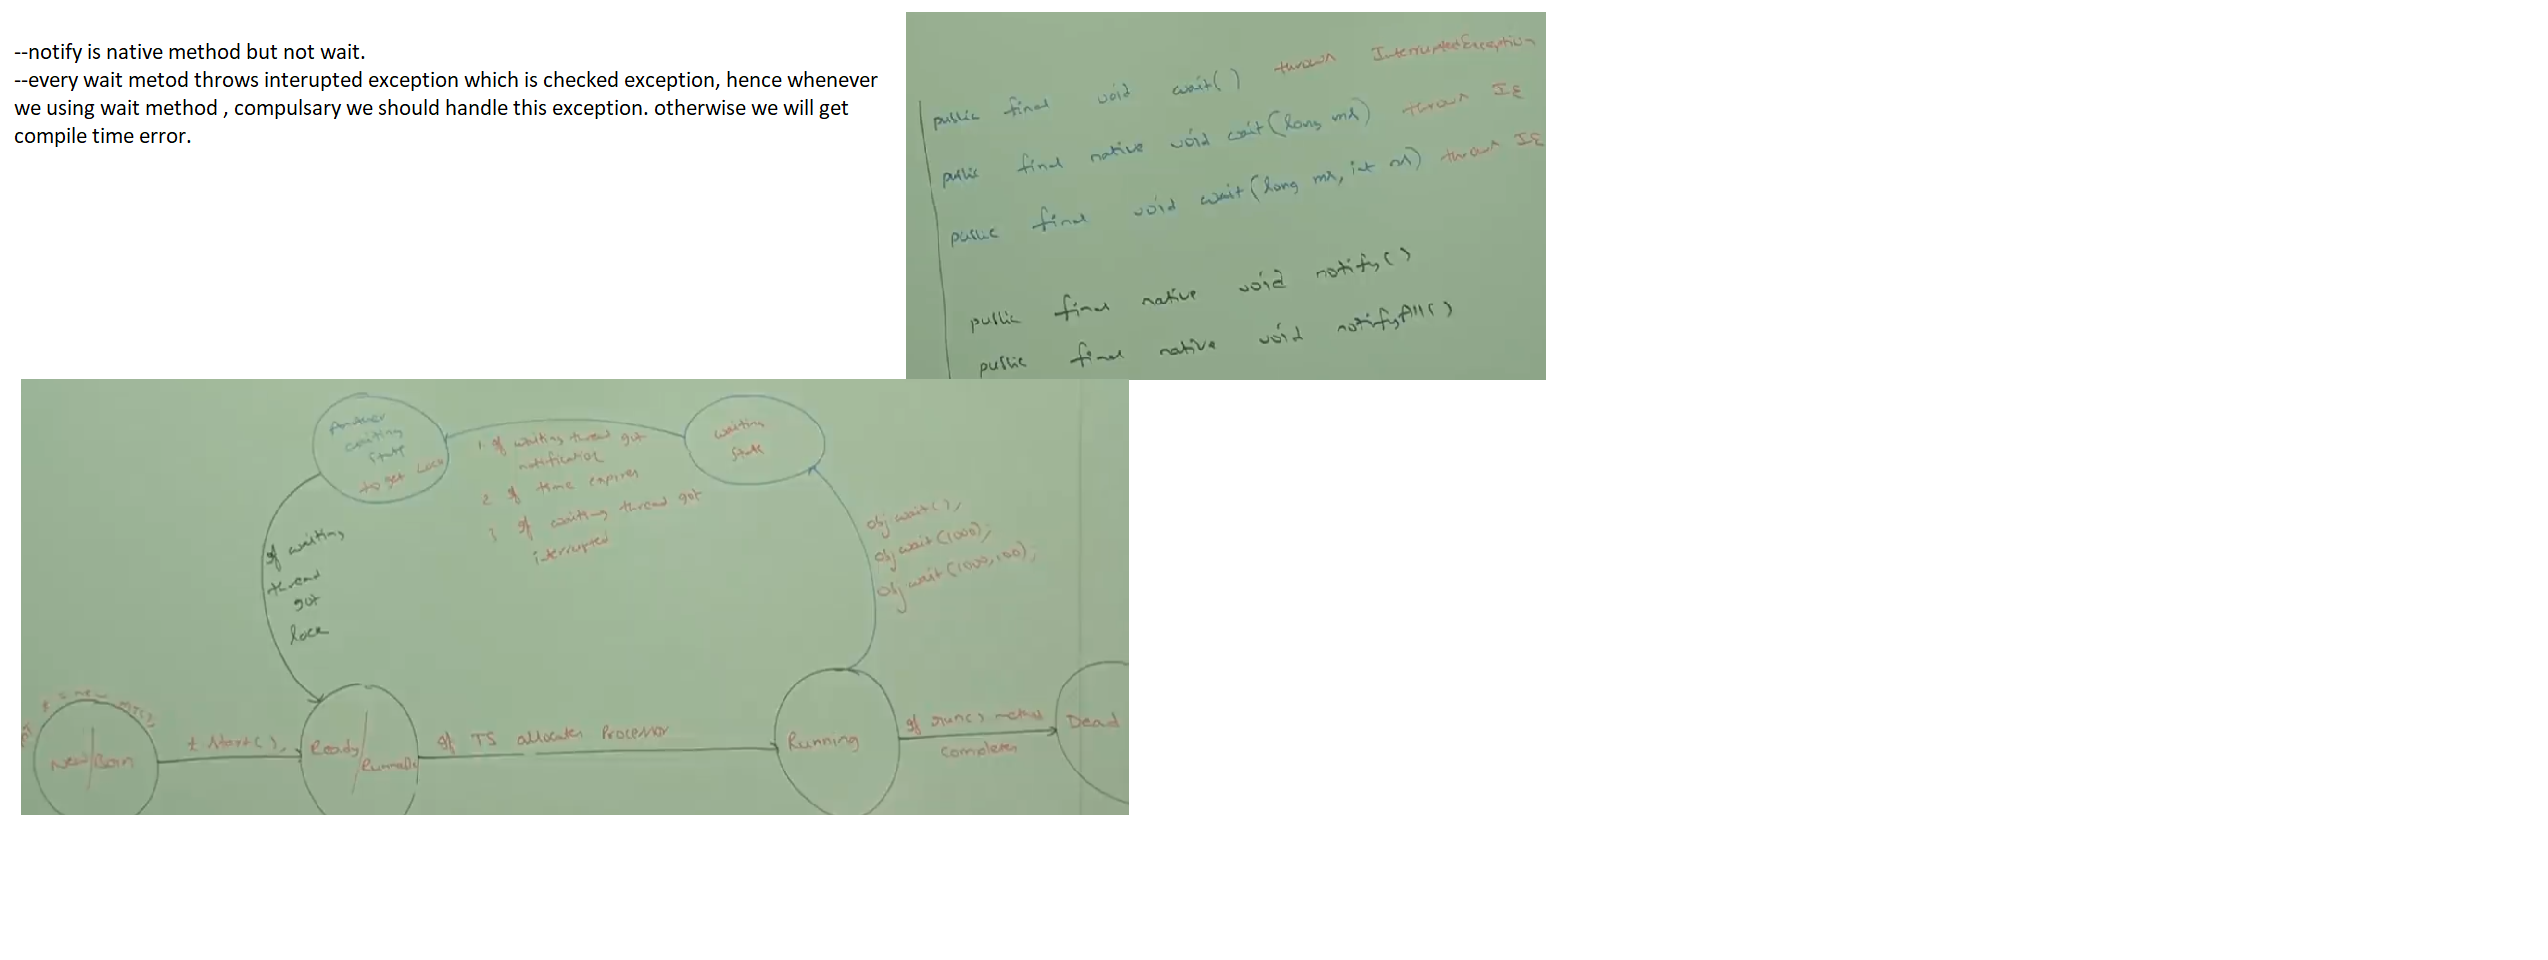 --notify is native method but not wait.
--every wait metod throws interupted exception which is checked exception, hence whenever
we using wait method , compulsary we should handle this exception. otherwise we will get
compile time error.
public final void wait() throws InterruptedException
public final native void wait(long ms) throws IE
public final void wait(long ms, int ns) throws IE
public final native void notify()
public final native void notifyAll()
Another
waiting
state
to get lock
1. If waiting thread got
notification
2 If time expires
3 If waiting thread got
interrupted
waiting
state
obj.wait();
obj.wait(1000);
obj.wait(1000,100);
If waiting
thread
got
lock
= new
MT();
New/Born
t.start();
Ready/
Runnable
If TS allocates Processor
Running
If run() method
completes
Dead